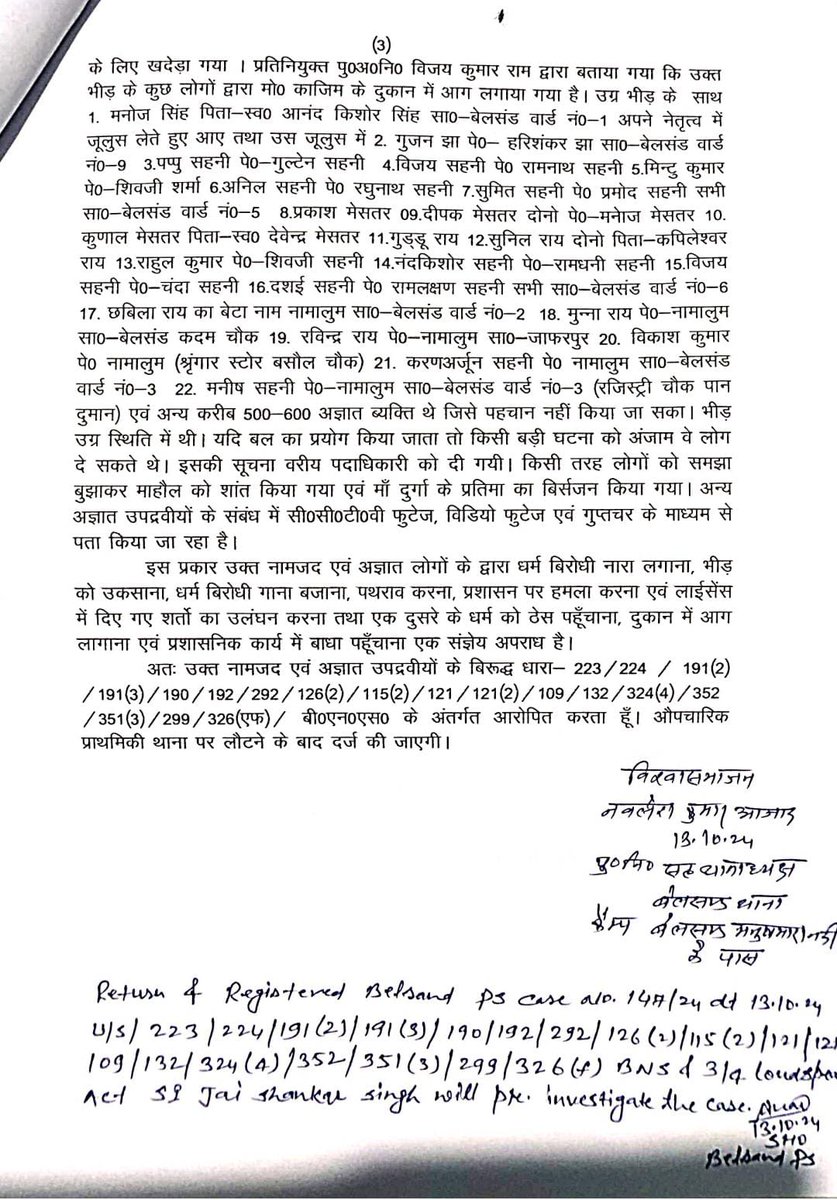 (3)
के लिए खदेड़ा गया । प्रतिनियुक्त पु0अ0नि0 विजय कुमार राम द्वारा बताया गया कि उक्त
भीड़ के कुछ लोगों द्वारा मो0 काजिम के दुकान में आग लगाया गया है। उग्र भीड़ के साथ
1. मनोज सिंह पिता–स्व0 आनंद किशोर सिंह सा0–बेलसंड वार्ड नं0–1 अपने नेतृत्व में
जूलुस लेते हुए आए तथा उस जूलुस में 2. गुजन झा पे0– हरिशंकर झा सा0–बेलसंड वार्ड
नं0–9 3.पप्पु सहनी पे0–गुल्टेन सहनी 4.विजय सहनी पे0 रामनाथ सहनी 5.मिन्टु कुमार
पे0–शिवजी शर्मा 6.अनिल सहनी पे0 रघुनाथ सहनी 7.सुमित सहनी पे0 प्रमोद सहनी सभी
सा0–बेलसंड वार्ड नं0–5 8.प्रकाश मेसतर 09.दीपक मेसतर दोनो पे0–मनोज मेसतर 10.
कुणाल मेसतर पिता–स्व0 देवेन्द्र मेसतर 11.गुड्डू राय 12.सुनिल राय दोनो पिता–कपिलेश्वर
राय 13.राहुल कुमार पे0–शिवजी सहनी 14.नंदकिशोर सहनी पे0–रामधनी सहनी 15.विजय
सहनी पे0–चंदा सहनी 16.दशई सहनी पे0 रामलक्षण सहनी सभी सा0–बेलसंड वार्ड नं0–6
17. छबिला राय का बेटा नाम नामालुम सा0–बेलसंड वार्ड नं0–2 18. मुन्ना राय पे0–नामालुम
सा0–बेलसंड कदम चौक 19. रविन्द्र राय पे0–नामालुम सा0–जाफरपुर 20. विकाश कुमार
पे0 नामालुम (श्रृंगार स्टोर बसौल चौक) 21. करणअर्जून सहनी पे0 नामालुम सा0–बेलसंड
वार्ड नं0–3 22. मनीष सहनी पे0–नामालुम सा0–बेलसंड वार्ड नं0–3 (रजिस्ट्री चौक पान
दुमान) एवं अन्य करीब 500–600 अज्ञात ब्यक्ति थे जिसे पहचान नहीं किया जा सका। भीड़
उग्र स्थिति में थी। यदि बल का प्रयोग किया जाता तो किसी बड़ी घटना को अंजाम वे लोग
दे सकते थे। इसकी सूचना वरीय पदाधिकारी को दी गयी। किसी तरह लोगों को समझा
बुझाकर माहौल को शांत किया गया एवं माँ दुर्गा के प्रतिमा का बिर्सजन किया गया। अन्य
अज्ञात उपद्रवीयों के संबंध में सी0सी0टी0वी फुटेज, विडियो फुटेज एवं गुप्तचर के माध्यम से
पता किया जा रहा है।
इस प्रकार उक्त नामजद एवं अज्ञात लोगों के द्वारा धर्म बिरोधी नारा लगाना, भीड़
को उकसाना, धर्म बिरोधी गाना बजाना, पथराव करना, प्रशासन पर हमला करना एवं लाईसेंस
में दिए गए शर्तो का उलंघन करना तथा एक दुसरे के धर्म को ठेस पहुँचाना, दुकान में आग
लागाना एवं प्रशासनिक कार्य में बाधा पहुँचाना एक संज्ञेय अपराध है।
अतः उक्त नामजद एवं अज्ञात उपद्रवीयों के बिरूद्ध धारा– 223/224 / 191(2)
/191(3)/190/192/292/126(2)/115(2)/121/121(2)/109/132/324(4)/352
/351(3)/299/326(एफ)/ बी0एन0एस0 के अंतर्गत आरोपित करता हूँ। औपचारिक
प्राथमिकी थाना पर लौटने के बाद दर्ज की जाएगी।
विश्वासभाजन
नवलेश कुमार आजाद
13.10.24
पु0नि0 सह थानाध्यक्ष
बेलसण्ड थाना
कैम्प बेलसण्ड मनुषमारा नदी
के पास
Return & Registered Belsand PS case No. 147/24 dt 13.10.24
U/S/ 223/224/191(2)/191(3)/190/192/292/126(2)/115(2)/121/121
109/132/324(4)/352/351(3)/299/326(f) BNS & 3/4 Loudspea
Act SI Jai Shankar Singh will pre. investigate the case.
13.10.24
SHO
Belsand PS